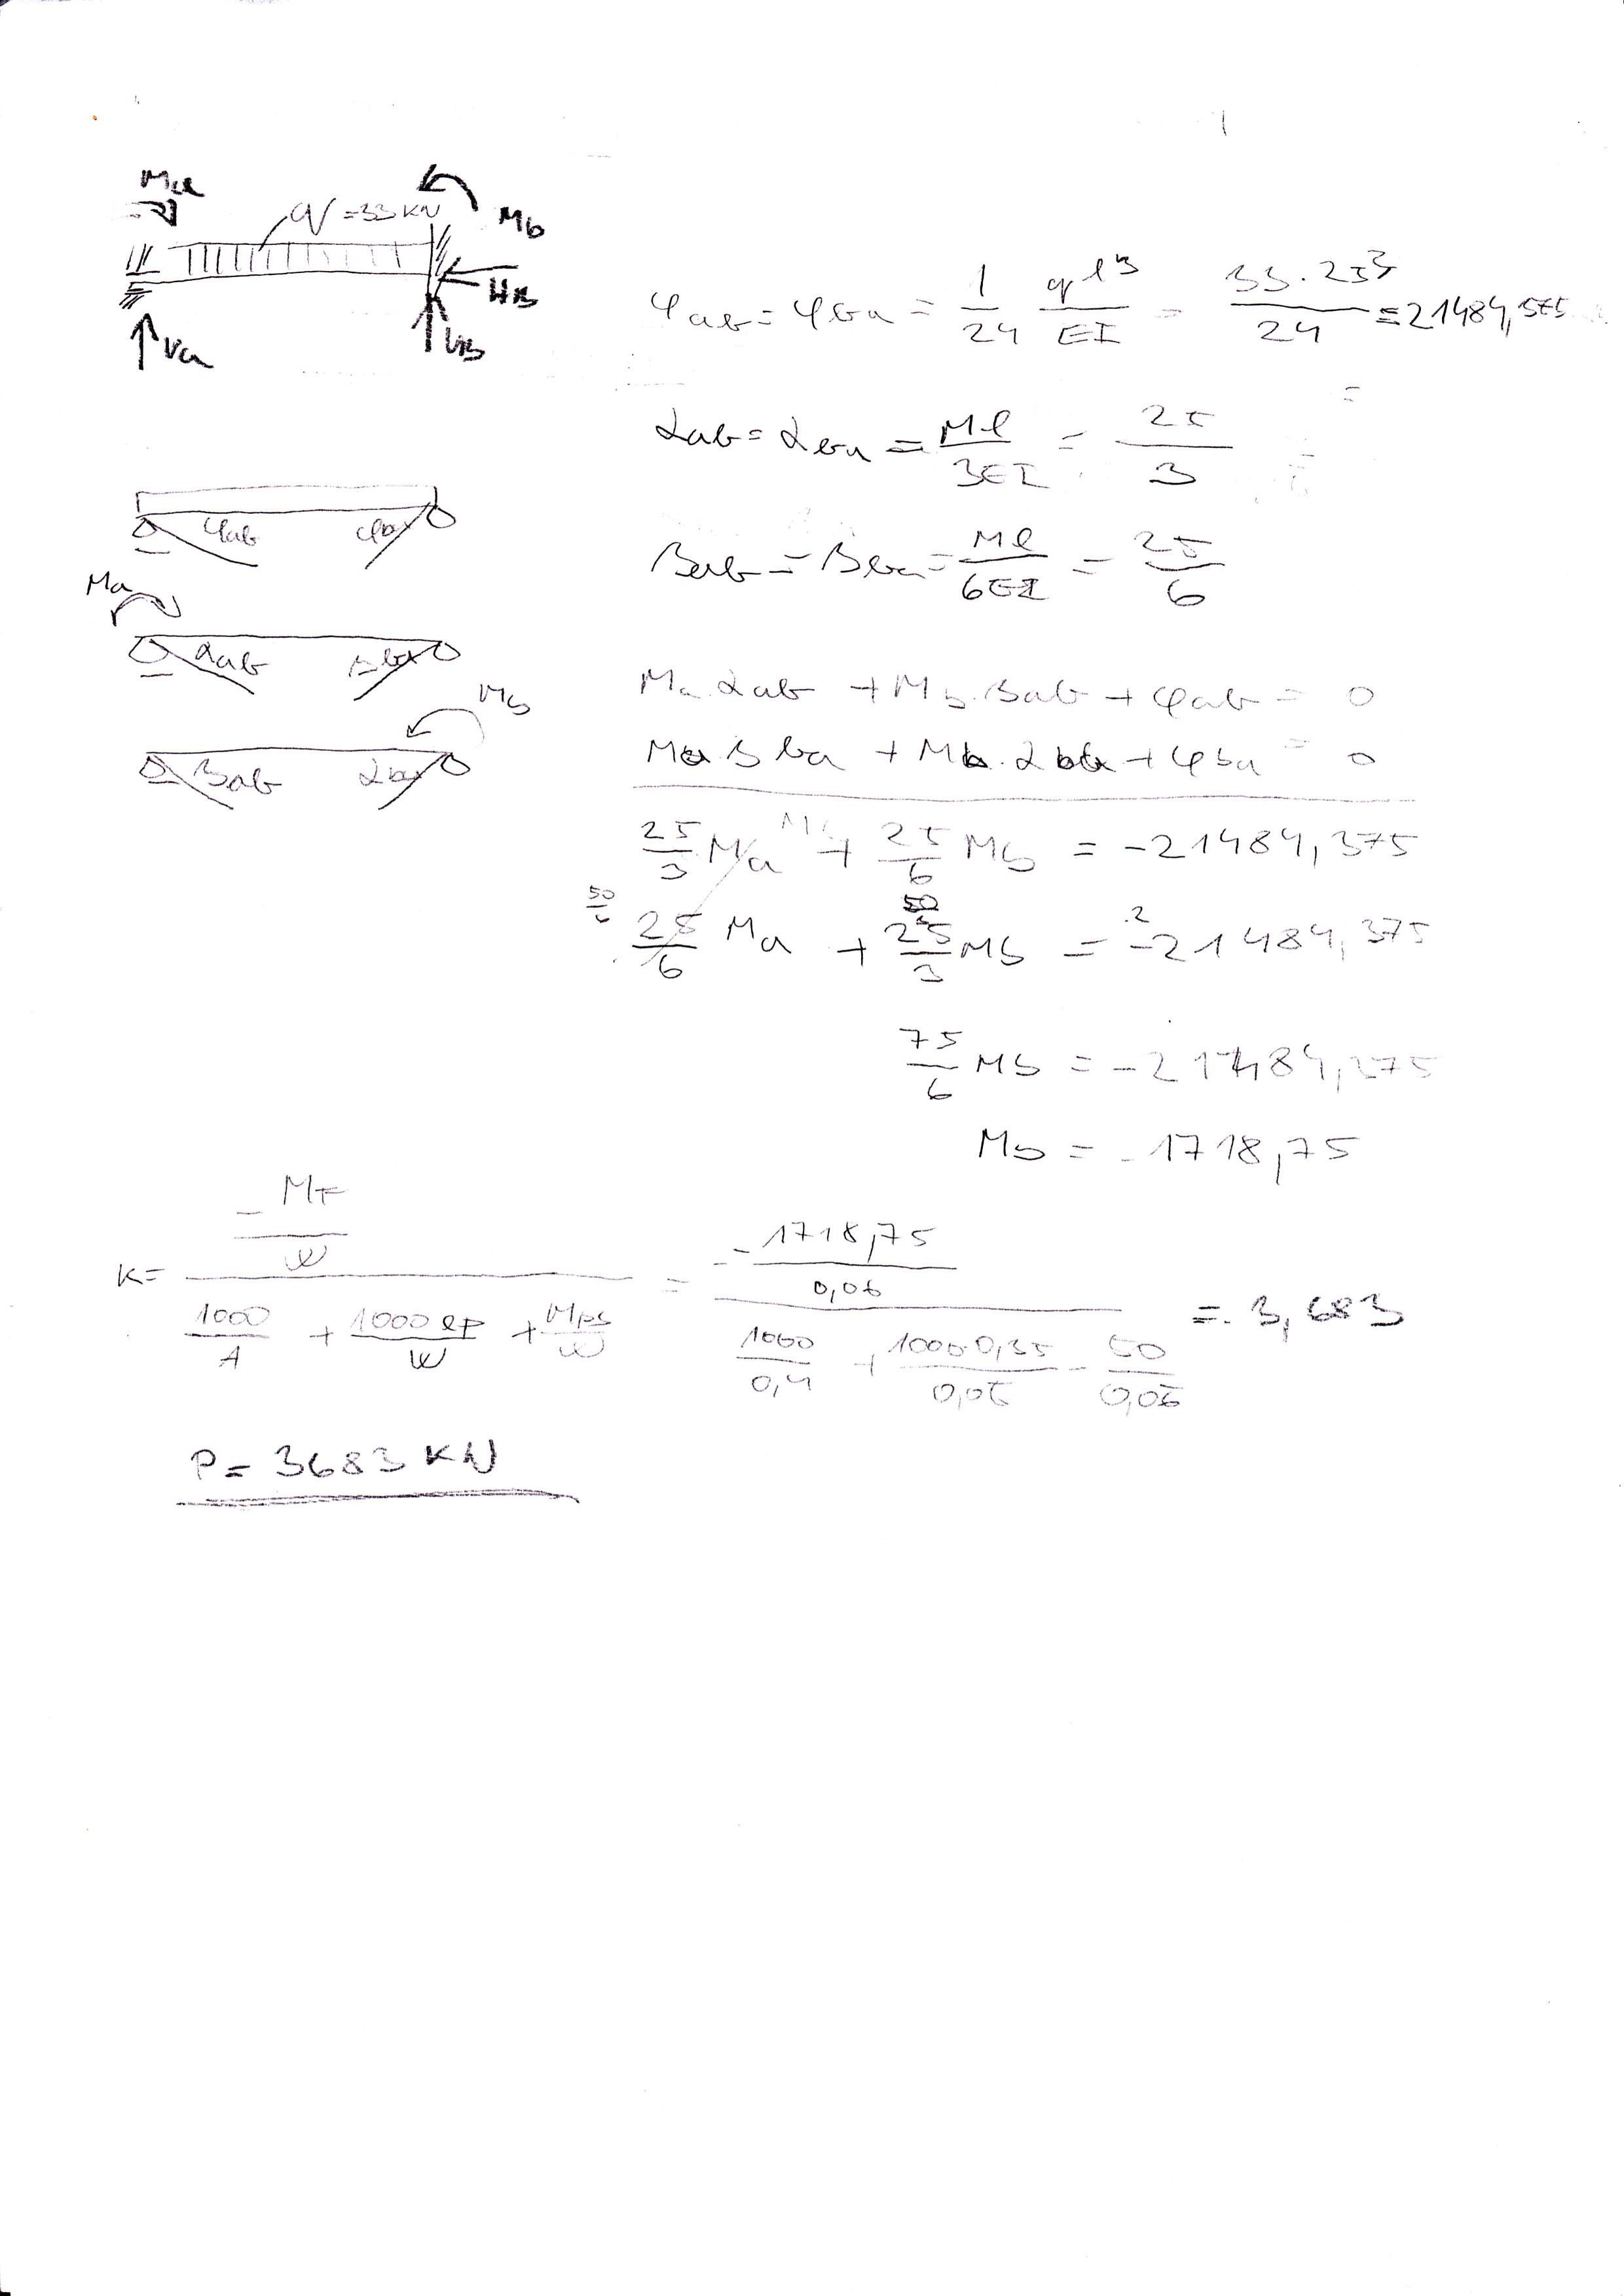 Ma
q = 33 KN
Mb
HB
Va
VB
φab = φba = 1/24 ql³/EI = 33·25³/24 = 21484,375
αab = αba = Ml/3EI = 25/3
φab φba
βab = βba = Ml/6EI = 25/6
Ma
αab βba
Mb
βab αba
Ma·αab + Mb·βab + φab = 0
Ma βba + Mb·αba + φba = 0
25/3 Ma + 25/6 Mb = -21484,375
50/6 25/6 Ma + 50 25/3 Mb = ·2 -21484,375
75/6 Mb = -21484,375
Mb = -1718,75
K = - MF/W / 1000/A + 1000 ep/W + Mps/W = - -1718,75/0,06 / 1000/0,4 + 1000·0,35/0,06 - 50/0,06 = 3,683
P = 3683 KN